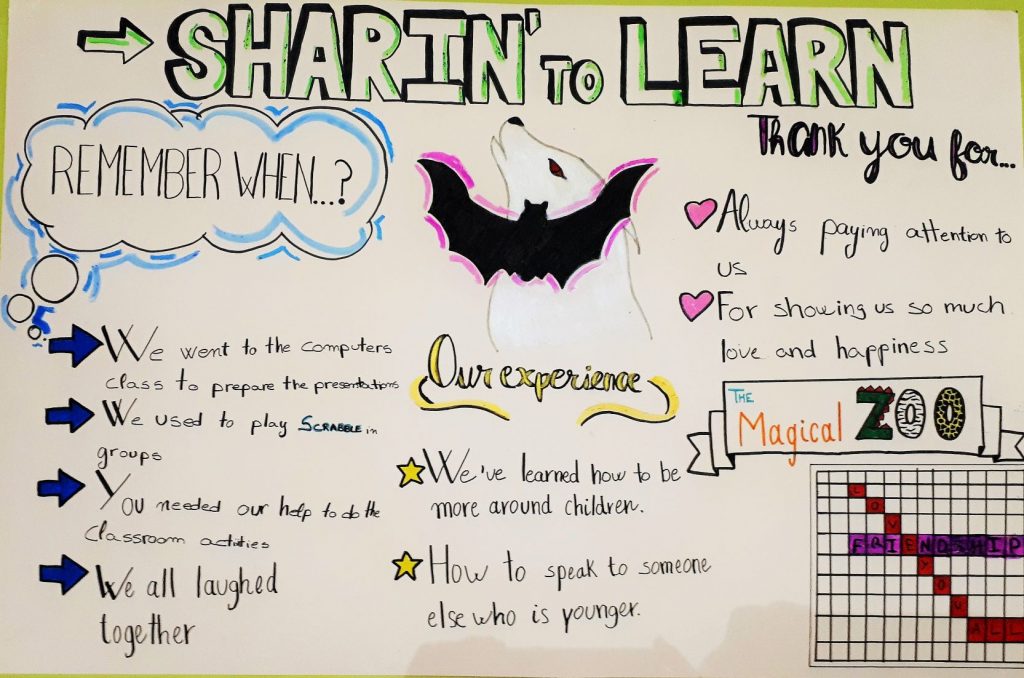 SHARIN' TO LEARN
REMEMBER WHEN...?
We went to the computers
class to prepare the presentations
We used to play SCRABBLE in
groups
You needed our help to do the
Classroom activities
We all laughed
together
Our experience
We've learned how to be
more around children.
How to speak to someone
else who is younger.
Thank you for...
Always paying attention to
us
For showing us so much
love and happiness
THE
Magical ZOO
LOVE YOU ALL
FRIENDSHIP